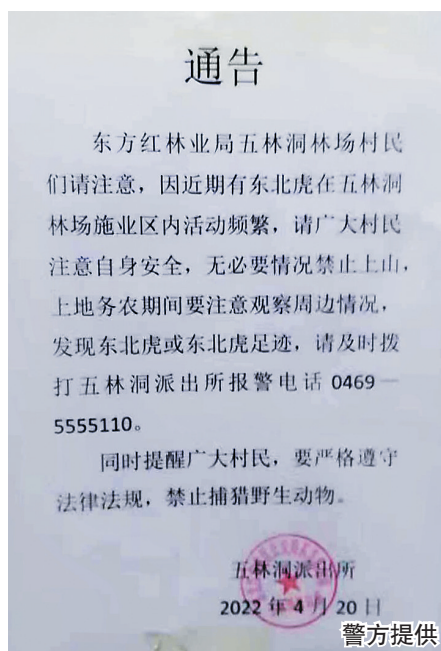 通告
东方红林业局五林洞林场村民
们请注意，因近期有东北虎在五林洞
林场施业区内活动频繁，请广大村民
注意自身安全，无必要情况禁止上山，
上地务农期间要注意观察周边情况，
发现东北虎或东北虎足迹，请及时拨
打五林洞派出所报警电话 0469－
5555110。
同时提醒广大村民，要严格遵守
法律法规，禁止捕猎野生动物。
五林洞派出所
2022 年 4 月 20 日
警方提供